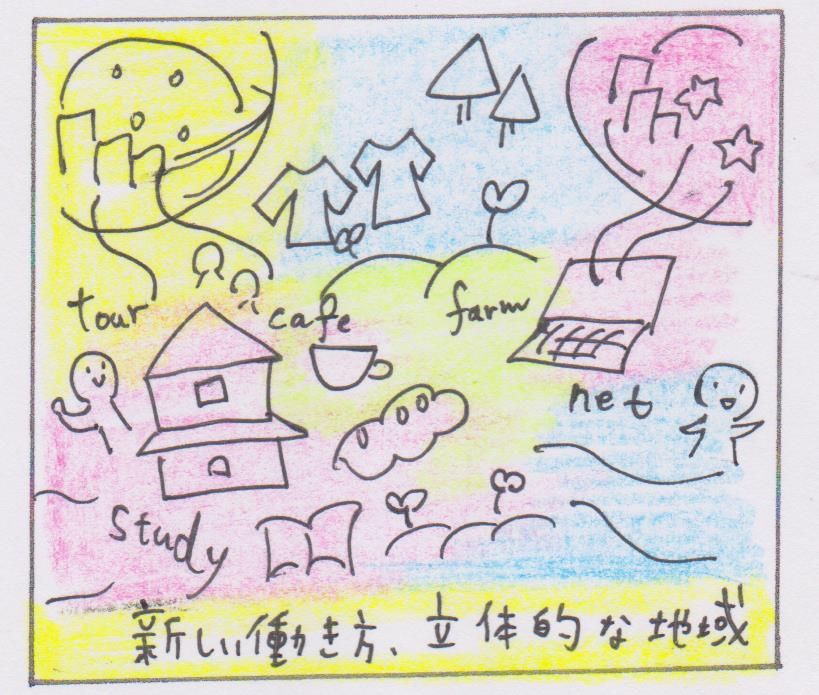 tour
cafe
farm
net
study
新しい働き方、立体的な地域